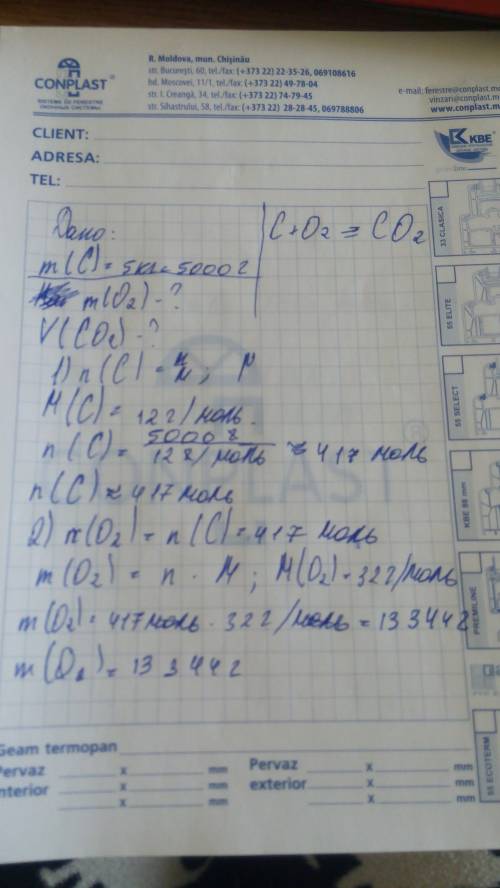 CONPLAST
SISTEME DE FERESTRE
ОКОННЫЕ СИСТЕМЫ
R. Moldova, mun. Chişinău
str. Bucureşti, 60, tel./fax: (+373 22) 22-35-26, 069108616
bd. Moscovei, 11/1, tel./fax: (+373 22) 49-78-04
str. I. Creangă, 34, tel./fax: (+373 22) 74-79-45
str. Sihastrului, 58, tel./fax: (+373 22) 28-28-45, 069788806
e-mail: ferestre@conplast.m
vinzari@conplast.m
www.conplast.m
CLIENT:
ADRESA:
TEL:
KBE
Дано:
m(C) = 5кг = 5000г
m(O2) - ?
V(CO2) - ?
C + O2 = CO2
1) n(C) = m/M; M
M(C) = 12г/моль.
n(C) = 5000г / 12г/моль ≈ 417 моль
n(C) ≈ 417 моль
2) n(O2) = n(C) = 417 моль
m(O2) = n · M; M(O2) = 32г/моль
m(O2) = 417моль · 32г/моль = 13344г
m(O2) = 13344г
CONPLAST
33 CLASICA
55 ELITE
55 SELECT
KBE 88 mm
PREMILINE
55 ECOTERM
Geam termopan
Pervaz x mm
nterior x mm
x mm
Pervaz x mm
exterior x mm
x mm